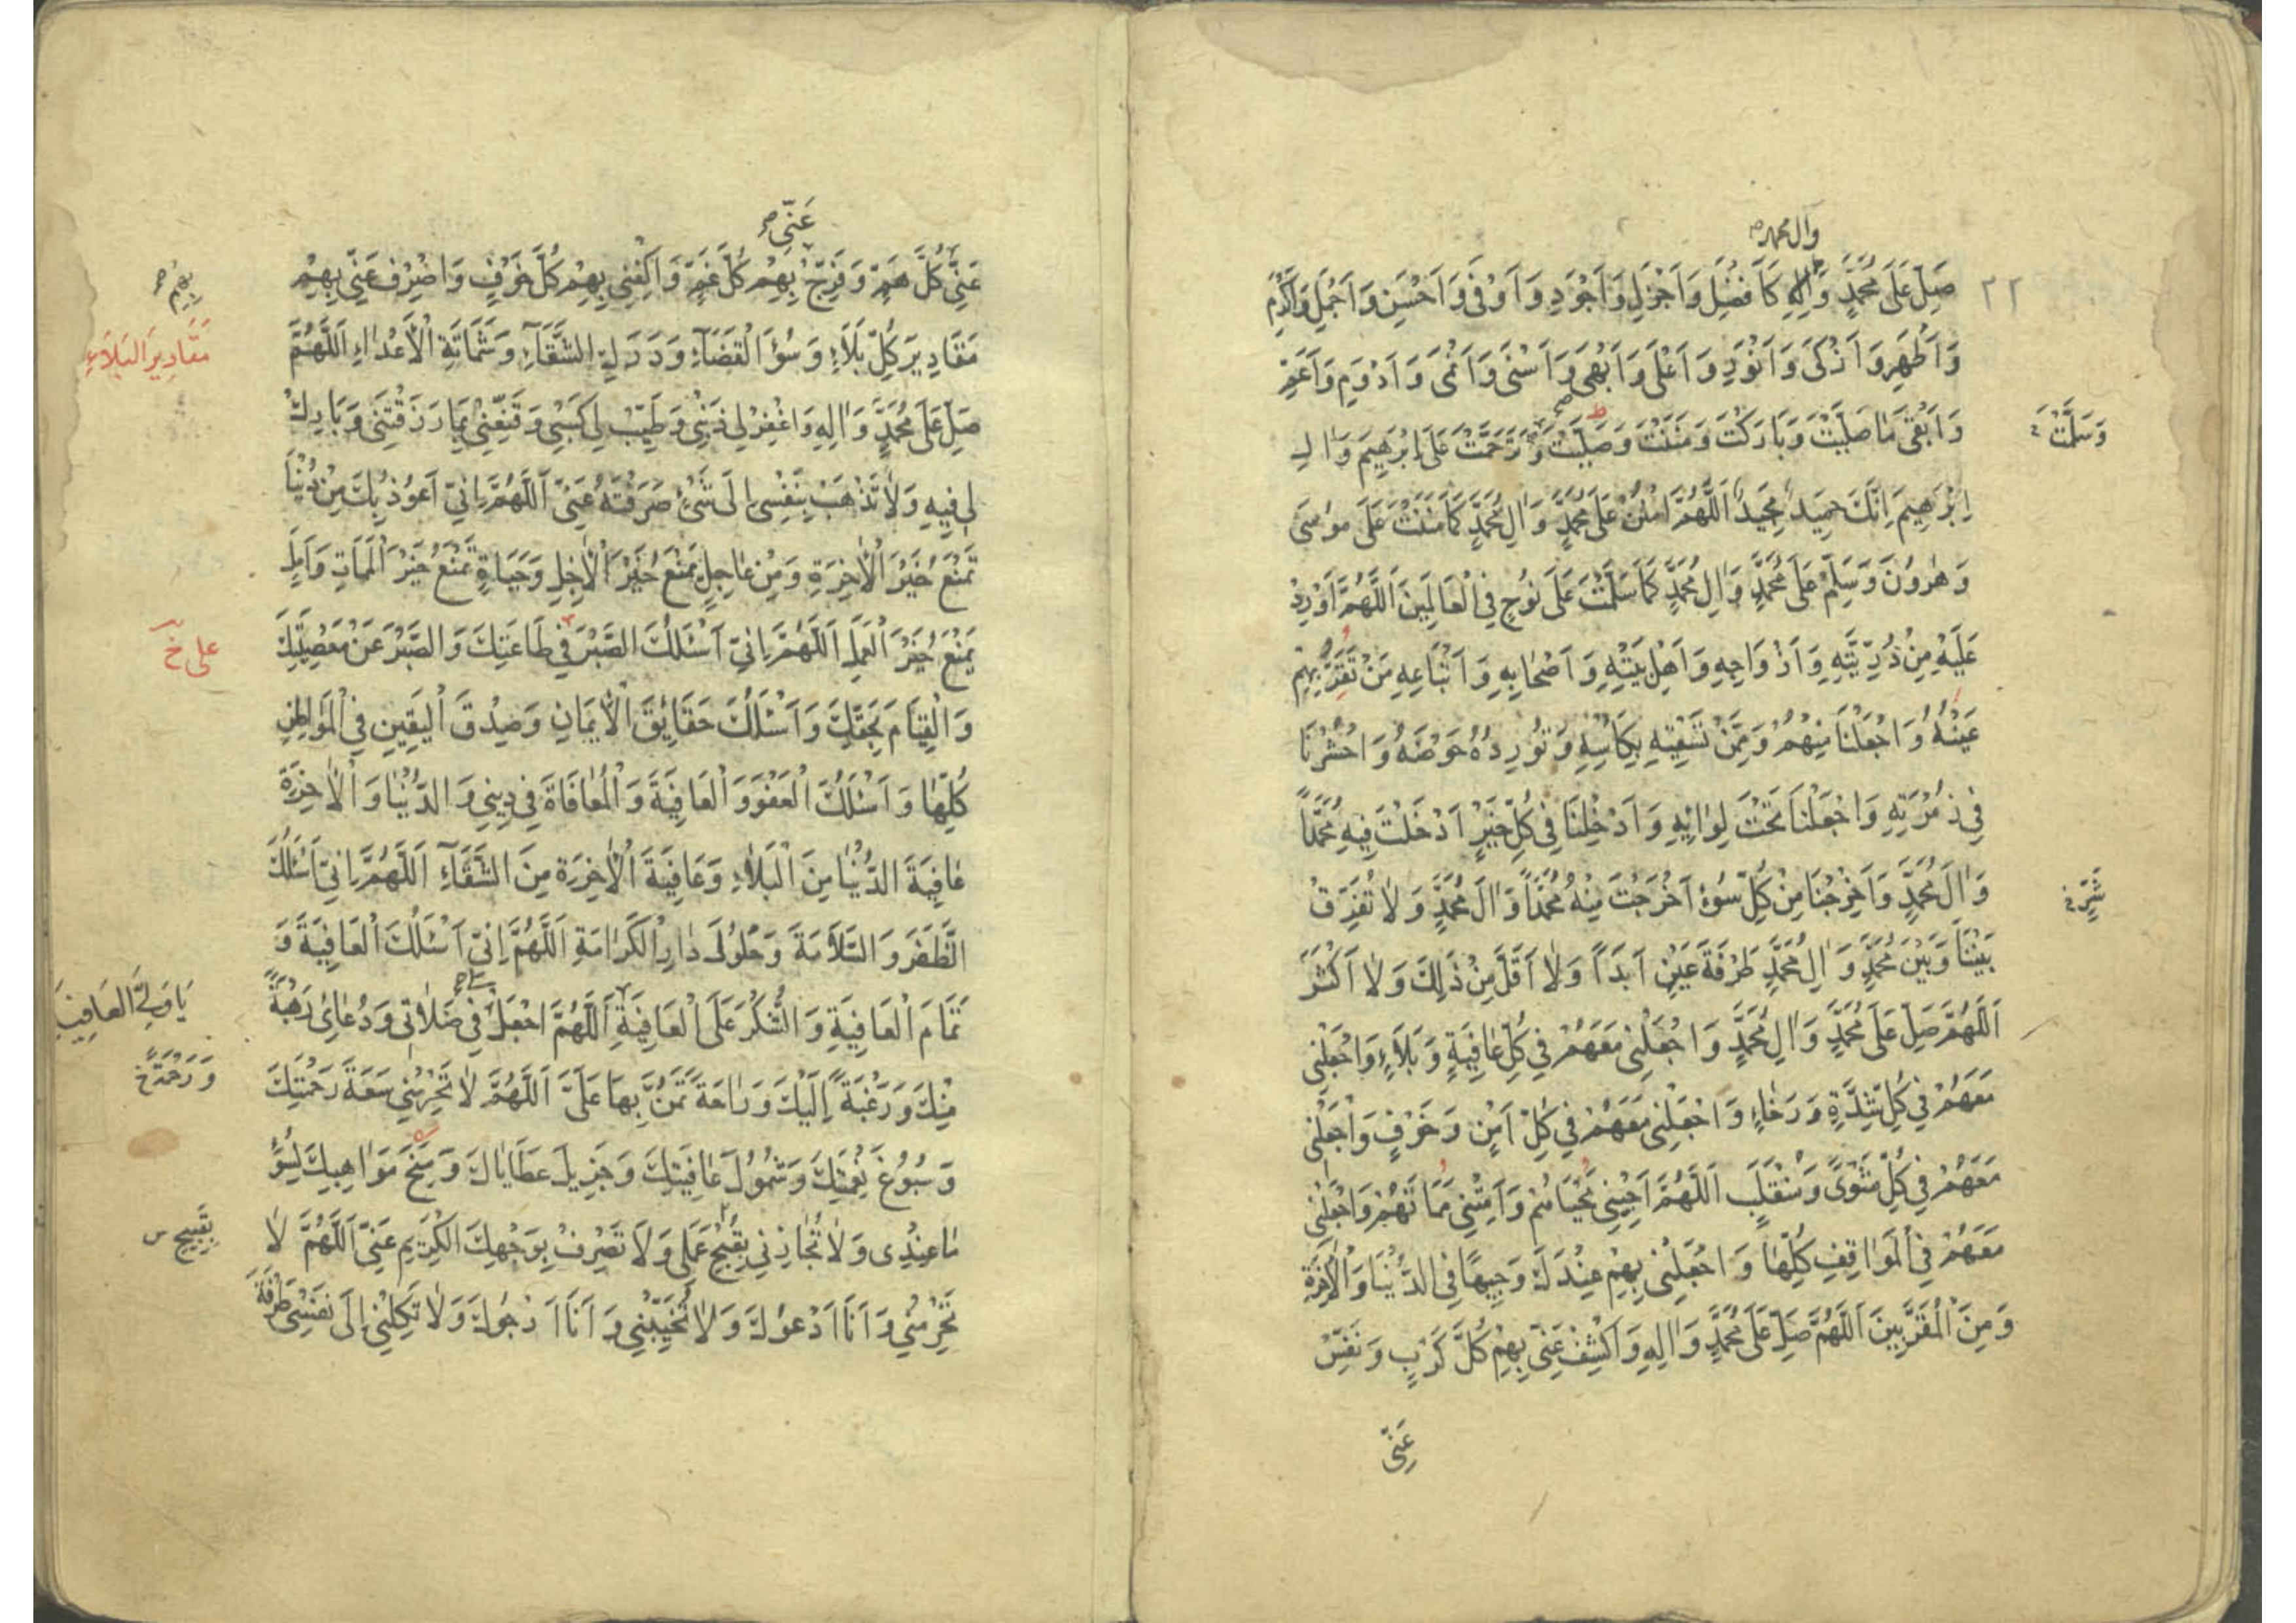 وآل محمد
٢٢
صَلِّ عَلَى مُحَمَّدٍ وَاٰلِهِ كَاَفْضَلِ وَاَجْزَلِ وَاَجْوَدِ وَاَوْفٰى وَاَحْسَنِ وَاَجْمَلِ وَاَكْرَمِ
وَاَطْهَرِ وَاَزْكٰى وَاَنْوَرِ وَاَعْلٰى وَاَبْهٰى وَاَسْنٰى وَاَنْمٰى وَاَدْوَمِ وَاَعَمِّ
وَاَبْقٰى مَا صَلَّيْتَ وَبَارَكْتَ وَمَنَنْتَ وَصَلَّيْتَ وَتَرَحَّمْتَ عَلَى اِبْرٰهِيمَ وَاٰلِ
وَسَلَّمْتَ
اِبْرٰهِيمَ اِنَّكَ حَمِيدٌ مَجِيدٌ اَللّٰهُمَّ امْنُنْ عَلَى مُحَمَّدٍ وَاٰلِ مُحَمَّدٍ كَمَا مَنَنْتَ عَلَى مُوسٰى
وَهٰرُونَ وَسَلِّمْ عَلَى مُحَمَّدٍ وَاٰلِ مُحَمَّدٍ كَمَا سَلَّمْتَ عَلَى نُوحٍ فِي الْعَالَمِينَ اَللّٰهُمَّ اَوْرِدْ
عَلَيْهِ مِنْ ذُرِّيَّتِهِ وَاَزْوَاجِهِ وَاَهْلِ بَيْتِهِ وَاَصْحَابِهِ وَاَتْبَاعِهِ مَنْ تَقَرُّ بِهِمْ
عَيْنُهُ وَاجْعَلْنَا مِنْهُمْ وَمِمَّنْ تَسْقِيهِ بِكَاْسِهِ وَتُورِدُهُ حَوْضَهُ وَاحْشُرْنَا
فِي زُمْرَتِهِ وَاجْعَلْنَا تَحْتَ لِوَائِهِ وَاَدْخِلْنَا فِي كُلِّ خَيْرٍ اَدْخَلْتَ فِيهِ مُحَمَّداً
وَاٰلَ مُحَمَّدٍ وَاَخْرِجْنَا مِنْ كُلِّ سُوءٍ اَخْرَجْتَ مِنْهُ مُحَمَّداً وَاٰلَ مُحَمَّدٍ وَلَا تُفَرِّقْ
شَرٍّ
بَيْنَنَا وَبَيْنَ مُحَمَّدٍ وَاٰلِ مُحَمَّدٍ طَرْفَةَ عَيْنٍ اَبَداً وَلَا اَقَلَّ مِنْ ذٰلِكَ وَلَا اَكْثَرَ
اَللّٰهُمَّ صَلِّ عَلَى مُحَمَّدٍ وَاٰلِ مُحَمَّدٍ وَاجْعَلْنِي مَعَهُمْ فِي كُلِّ عَافِيَةٍ وَبَلَاءٍ وَاجْعَلْنِي
مَعَهُمْ فِي كُلِّ شِدَّةٍ وَرَخَاءٍ وَاجْعَلْنِي مَعَهُمْ فِي كُلِّ اَمْنٍ وَخَوْفٍ وَاجْعَلْنِي
مَعَهُمْ فِي كُلِّ مَثْوًى وَمُنْقَلَبٍ اَللّٰهُمَّ اَحْيِنِي مَحْيَاهُمْ وَاَمِتْنِي مَمَاتَهُمْ وَاجْعَلْنِي
مَعَهُمْ فِي الْمَوَاقِفِ كُلِّهَا وَاجْعَلْنِي بِهِمْ عِنْدَكَ وَجِيهًا فِي الدُّنْيَا وَالْاٰخِرَةِ
وَمِنَ الْمُقَرَّبِينَ اَللّٰهُمَّ صَلِّ عَلَى مُحَمَّدٍ وَاٰلِهِ وَاكْشِفْ عَنِّي بِهِمْ كُلَّ كَرْبٍ وَنَفِّسْ
عَنِّي
عَنِّي
عَنِّي كُلَّ هَمٍّ وَفَرِّجْ بِهِمْ كُلَّ غَمٍّ وَاكْفِنِي بِهِمْ كُلَّ خَوْفٍ وَاصْرِفْ عَنِّي بِهِمْ
بهم
مَقَادِيرَ كُلِّ بَلَاءٍ وَسُوءَ الْقَضَاءِ وَدَرَكِ الشَّقَاءِ وَشَمَاتَةِ الْاَعْدَاءِ اَللّٰهُمَّ
مَقَادِيرَ البَلَاءِ
صَلِّ عَلَى مُحَمَّدٍ وَاٰلِهِ وَاغْفِرْ لِي ذَنْبِي وَطَيِّبْ لِي كَسْبِي وَقَنِّعْنِي بِمَا رَزَقْتَنِي وَبَارِكْ
لِي فِيهِ وَلَا تَذْهَبْ بِنَفْسِي اِلَى شَيْءٍ صَرَفْتَهُ عَنِّي اَللّٰهُمَّ اِنِّي اَعُوذُ بِكَ مِنْ دُنْيَا
تَمْنَعُ خَيْرَ الْاٰخِرَةِ وَمِنْ عَاجِلٍ يَمْنَعُ خَيْرَ الْاٰجِلِ وَحَيَاةٍ تَمْنَعُ خَيْرَ الْمَمَاتِ وَاَمَلٍ
يَمْنَعُ خَيْرَ الْعَمَلِ اَللّٰهُمَّ اِنِّي اَسْئَلُكَ الصَّبْرَ فِي طَاعَتِكَ وَالصَّبْرَ عَنْ مَعْصِيَتِكَ
على خ
وَالْقِيَامَ بِحَقِّكَ وَاَسْئَلُكَ حَقَائِقَ الْاِيمَانِ وَصِدْقَ الْيَقِينِ فِي الْمَوَاطِنِ
كُلِّهَا وَاَسْئَلُكَ الْعَفْوَ وَالْعَافِيَةَ وَالْمُعَافَاةَ فِي دِينِي وَالدُّنْيَا وَالْاٰخِرَةِ
عَافِيَةَ الدُّنْيَا مِنَ الْبَلَاءِ وَعَافِيَةَ الْاٰخِرَةِ مِنَ الشَّقَاءِ اَللّٰهُمَّ اِنِّي اَسْئَلُكَ
الظَّفَرَ وَالسَّلَامَةَ وَحُلُولَ دَارِ الْكَرَامَةِ اَللّٰهُمَّ اِنِّي اَسْئَلُكَ الْعَافِيَةَ وَ
تَمَامَ الْعَافِيَةِ وَالشُّكْرَ عَلَى الْعَافِيَةِ اَللّٰهُمَّ اجْعَلْ فِي صَلَاتِي وَدُعَائِي رَهْبَةً
يَا وَلِيَّ العَافِيَة
مِنْكَ وَرَغْبَةً اِلَيْكَ وَرَاحَةً تَمُنُّ بِهَا عَلَيَّ اَللّٰهُمَّ لَا تَحْرِمْنِي سَعَةَ رَحْمَتِكَ
وَرَحْمَةً خ
وَسُبُوغَ نِعْمَتِكَ وَشُمُولَ عَافِيَتِكَ وَجَزِيلَ عَطَايَاكَ وَمِنَحَ مَوَاهِبِكَ لِسُوءِ
مَا عِنْدِي وَلَا تُجَازِنِي بِقُبْحِ عَمَلِي وَلَا تَصْرِفْ بِوَجْهِكَ الْكَرِيمِ عَنِّي اَللّٰهُمَّ لَا
بِقَبِيحِ
تَحْرِمْنِي وَاَنَا اَدْعُوكَ وَلَا تُخَيِّبْنِي وَاَنَا اَرْجُوكَ وَلَا تَكِلْنِي اِلَى نَفْسِي طَرْفَةَ